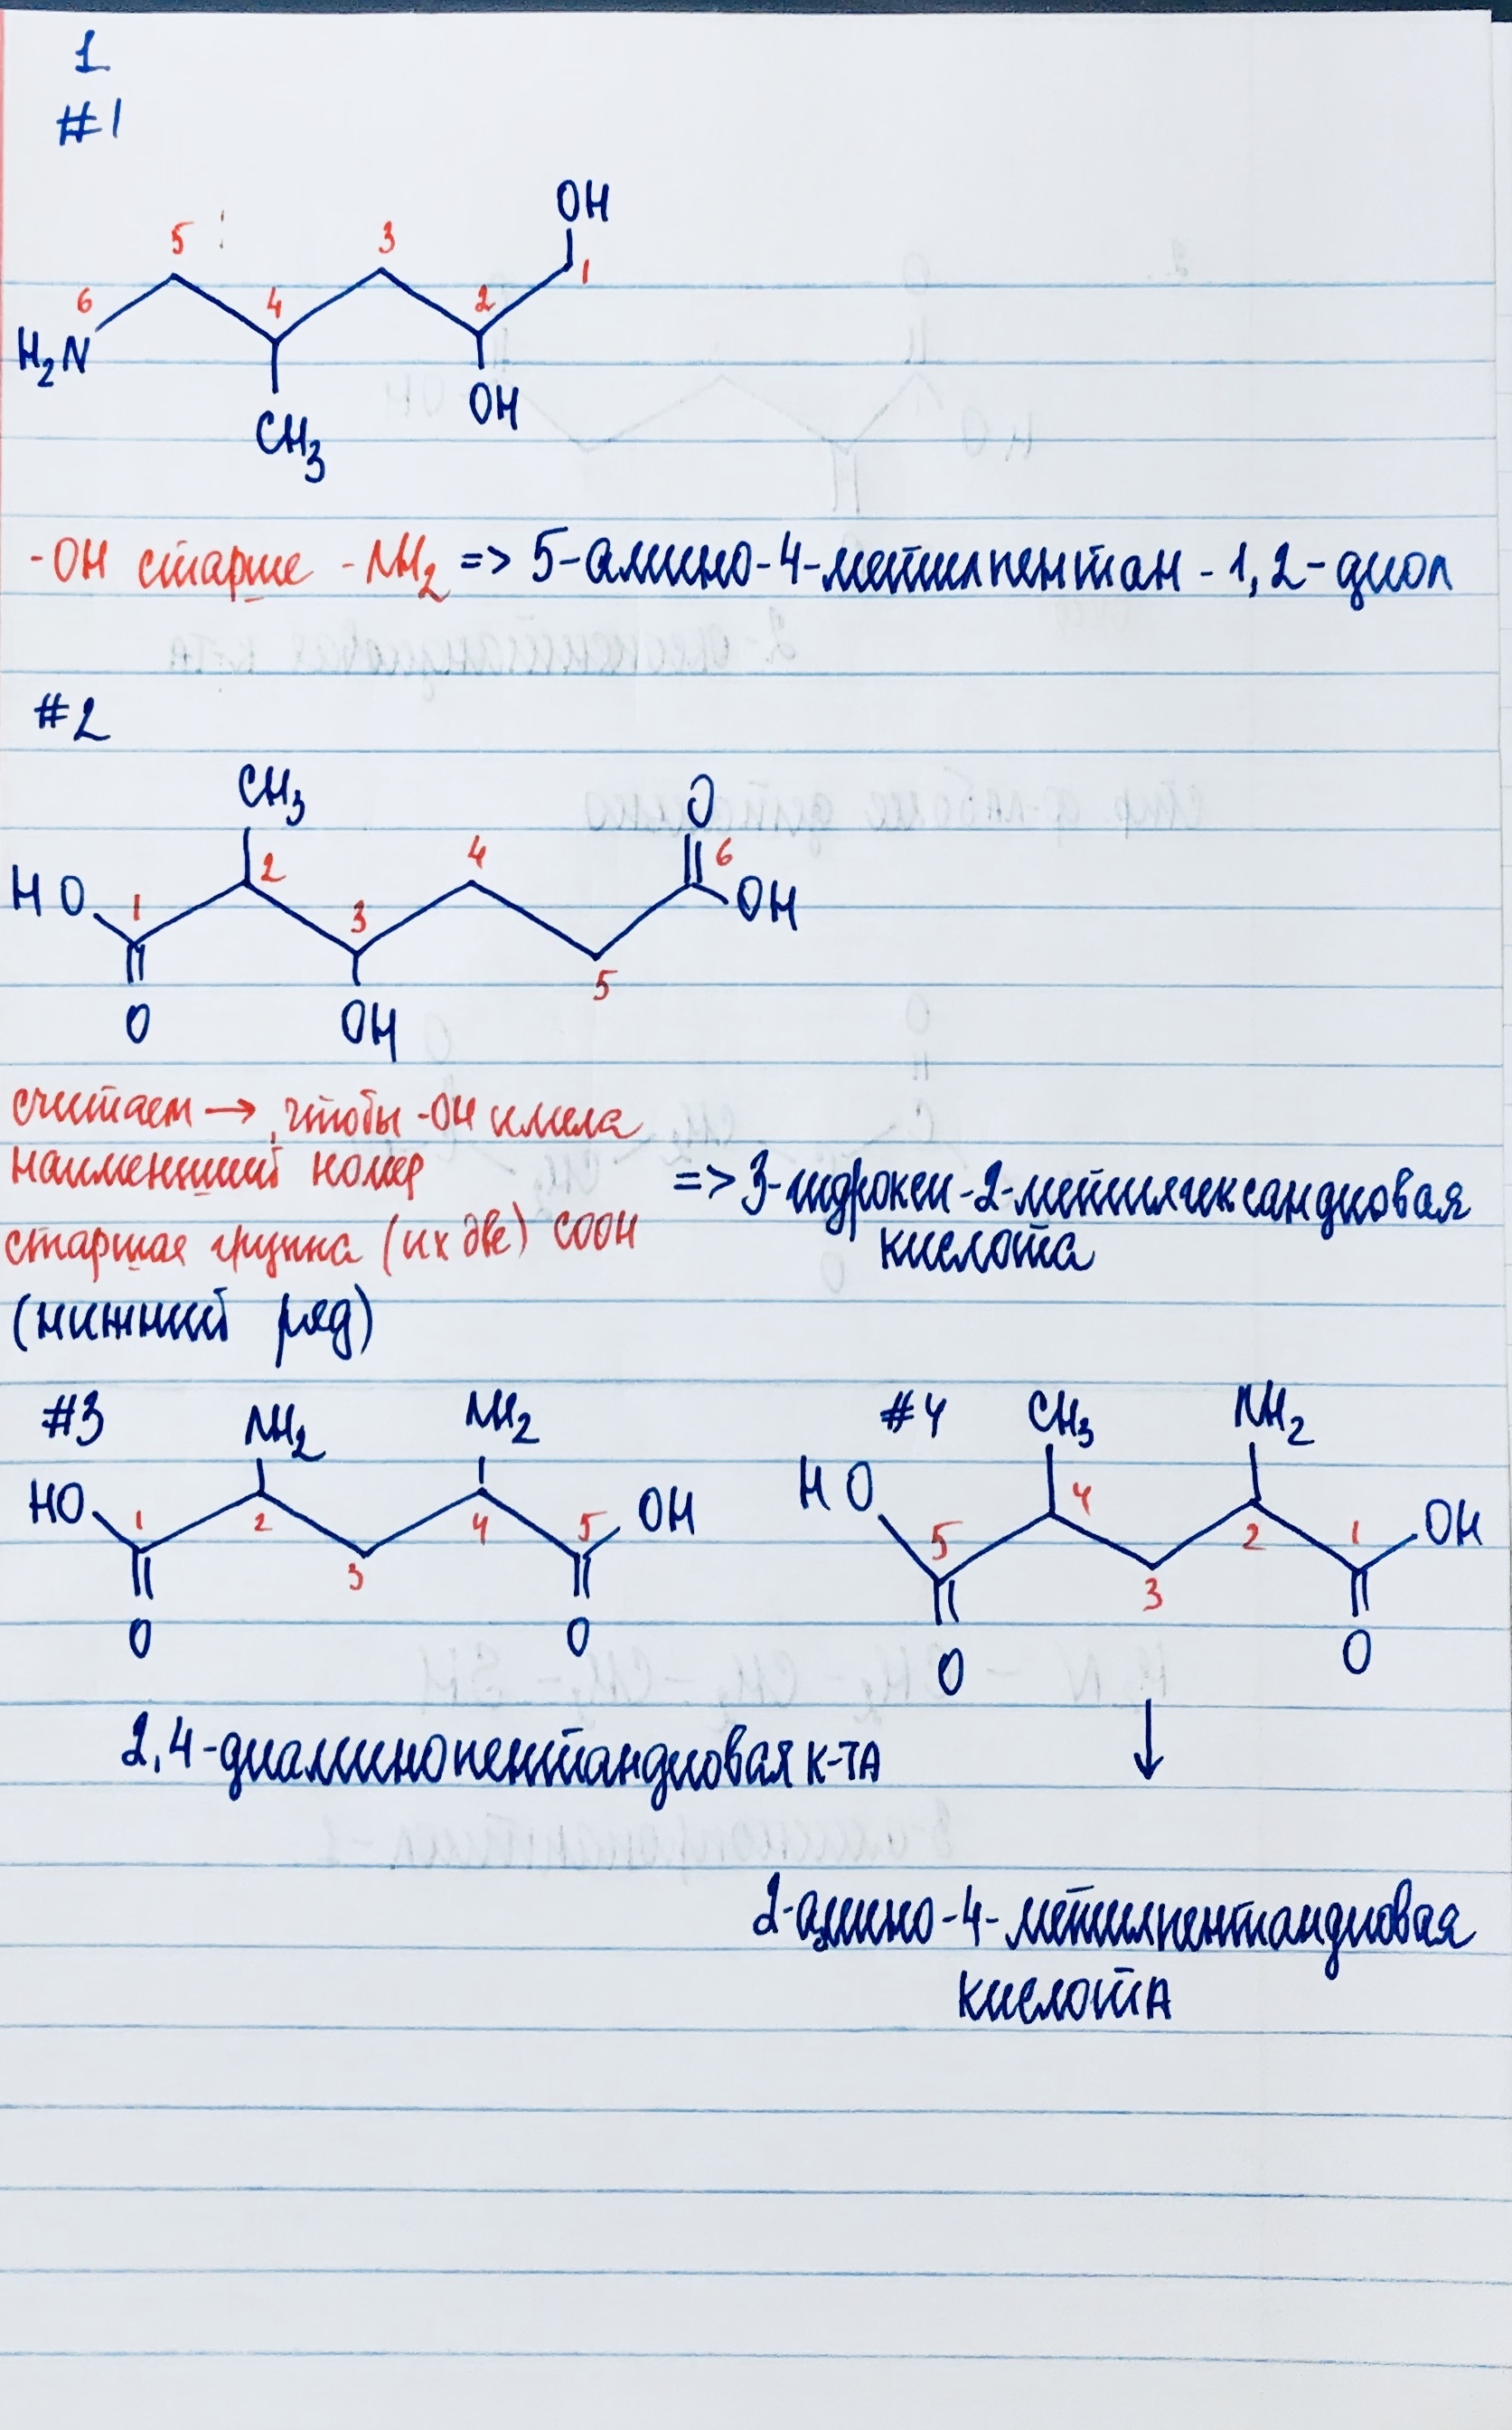 1
#1
OH
5 3
6 4 2 1
H₂N
OH
CH₃
-OH старше -NH₂ => 5-амино-4-метилпентан-1,2-диол
#2
CH₃ O
HO 1 2 3 4 6 OH
5
O OH
считаем → , чтобы -OH имела
наименьший номер
старшая группа (их две) COOH
=> 3-гидрокси-2-метилгександиовая
кислота
(нижний ряд)
#3 NH₂ NH₂
HO 1 2 4 5 OH
3
O O
2,4-диаминопентандиовая к-та
#4 CH₃ NH₂
HO 5 4 2 1 OH
3
O O
↓
2-амино-4-метилпентандиовая
кислота